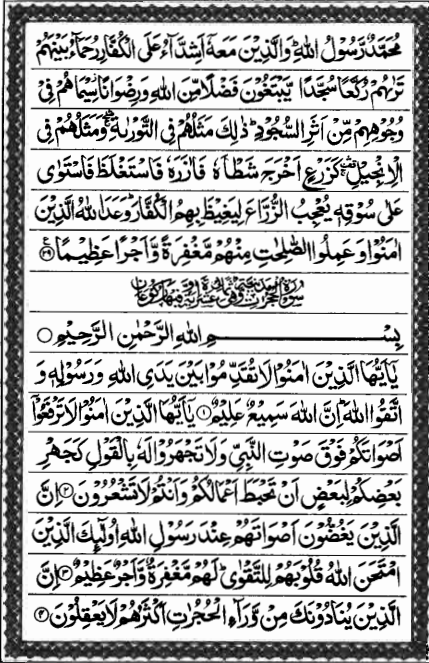 مُحَمَّدٌ رَّسُوۡلُ اللّٰهِ ؕ وَالَّذِيۡنَ مَعَهٗۤ اَشِدَّآءُ عَلَى الۡكُفَّارِ رُحَمَآءُ بَيۡنَهُمۡ
تَرٰىهُمۡ رُكَّعًا سُجَّدًا يَّبۡتَغُوۡنَ فَضۡلًا مِّنَ اللّٰهِ وَرِضۡوَانًا ؗ سِيۡمَاهُمۡ فِىۡ
وُجُوۡهِهِمۡ مِّنۡ اَثَرِ السُّجُوۡدِ ؕ ذٰلِكَ مَثَلُهُمۡ فِى التَّوۡرٰٮةِ ۛۖۚ وَمَثَلُهُمۡ فِى
الۡاِنۡجِيۡلِ ۛۚ كَزَرۡعٍ اَخۡرَجَ شَطْئَهٗ فَاٰزَرَهٗ فَاسۡتَغۡلَظَ فَاسۡتَوٰى
عَلٰى سُوۡقِهٖ يُعۡجِبُ الزُّرَّاعَ لِيَغِيۡظَ بِهِمُ الۡكُفَّارَ ؕ وَعَدَ اللّٰهُ الَّذِيۡنَ
اٰمَنُوۡا وَعَمِلُوا الصّٰلِحٰتِ مِنۡهُمۡ مَّغۡفِرَةً وَّاَجۡرًا عَظِيۡمًا ﴿۲۹﴾
بِسۡمِ اللّٰهِ الرَّحۡمٰنِ الرَّحِيۡمِ ○
يٰۤاَيُّهَا الَّذِيۡنَ اٰمَنُوۡا لَا تُقَدِّمُوۡا بَيۡنَ يَدَىِ اللّٰهِ وَرَسُوۡلِهٖ وَ
اتَّقُوا اللّٰهَ ؕ اِنَّ اللّٰهَ سَمِيۡعٌ عَلِيۡمٌ ﴿۱﴾ يٰۤاَيُّهَا الَّذِيۡنَ اٰمَنُوۡا لَا تَرۡفَعُوۡۤا
اَصۡوَاتَكُمۡ فَوۡقَ صَوۡتِ النَّبِىِّ وَلَا تَجۡهَرُوۡا لَهٗ بِالۡقَوۡلِ كَجَهۡرِ
بَعۡضِكُمۡ لِبَعۡضٍ اَنۡ تَحۡبَطَ اَعۡمَالُكُمۡ وَاَنۡتُمۡ لَا تَشۡعُرُوۡنَ ﴿۲﴾ اِنَّ
الَّذِيۡنَ يَغُضُّوۡنَ اَصۡوَاتَهُمۡ عِنۡدَ رَسُوۡلِ اللّٰهِ اُولٰٓئِكَ الَّذِيۡنَ
امۡتَحَنَ اللّٰهُ قُلُوۡبَهُمۡ لِلتَّقۡوٰى ؕ لَهُمۡ مَّغۡفِرَةٌ وَّاَجۡرٌ عَظِيۡمٌ ﴿۳﴾ اِنَّ
الَّذِيۡنَ يُنَادُوۡنَكَ مِنۡ وَّرَآءِ الۡحُجُرٰتِ اَكۡثَرُهُمۡ لَا يَعۡقِلُوۡنَ ﴿۴﴾